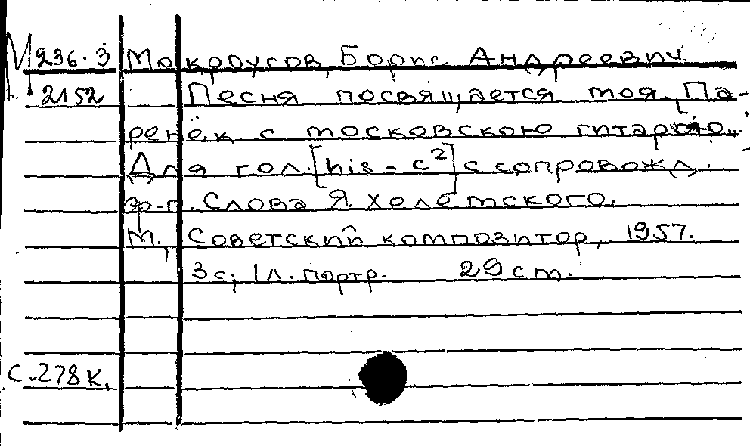 М 236-3 Мокроусов, Борис Андреевич
2152 Песня посвящается моя. [Па-
ренёк с московскою гитарою..
Для гол. [his - c²] с сопровожд.
ф-п. Слова Я. Хелемского.
М., Советский композитор, 1957.
3 с; 1 л. портр. 29 cm.
С.-278 к.